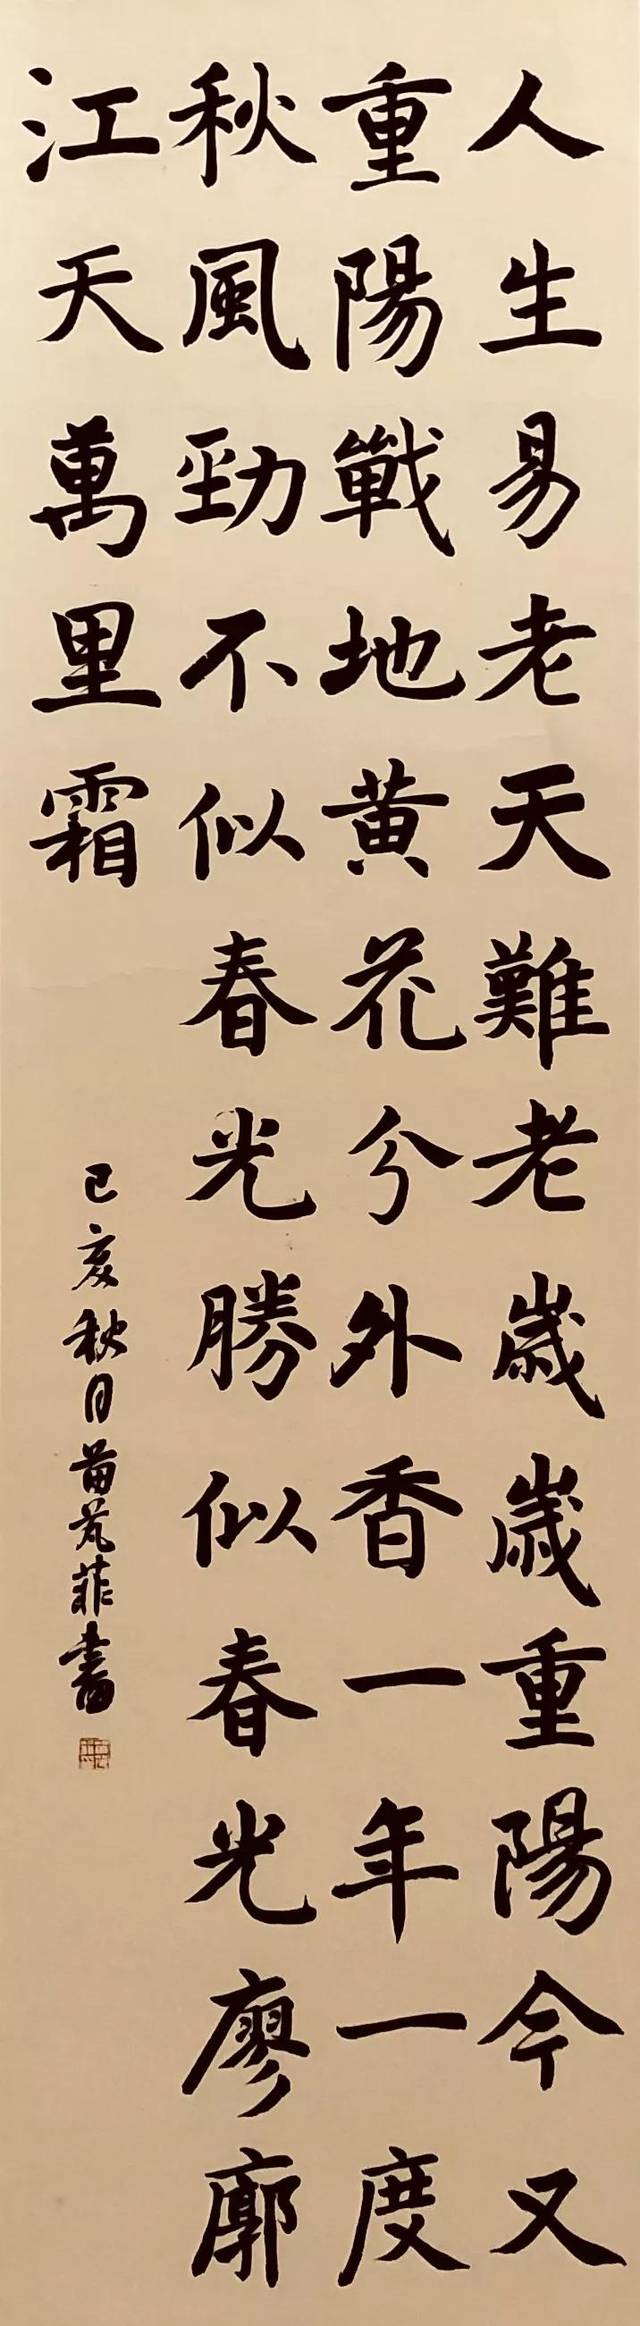 人生易老天難老歲歲重陽今又
重陽戰地黄花分外香一年一度
秋風勁不似春光勝似春光廖廓
江天萬里霜
己亥秋月苗芃菲書